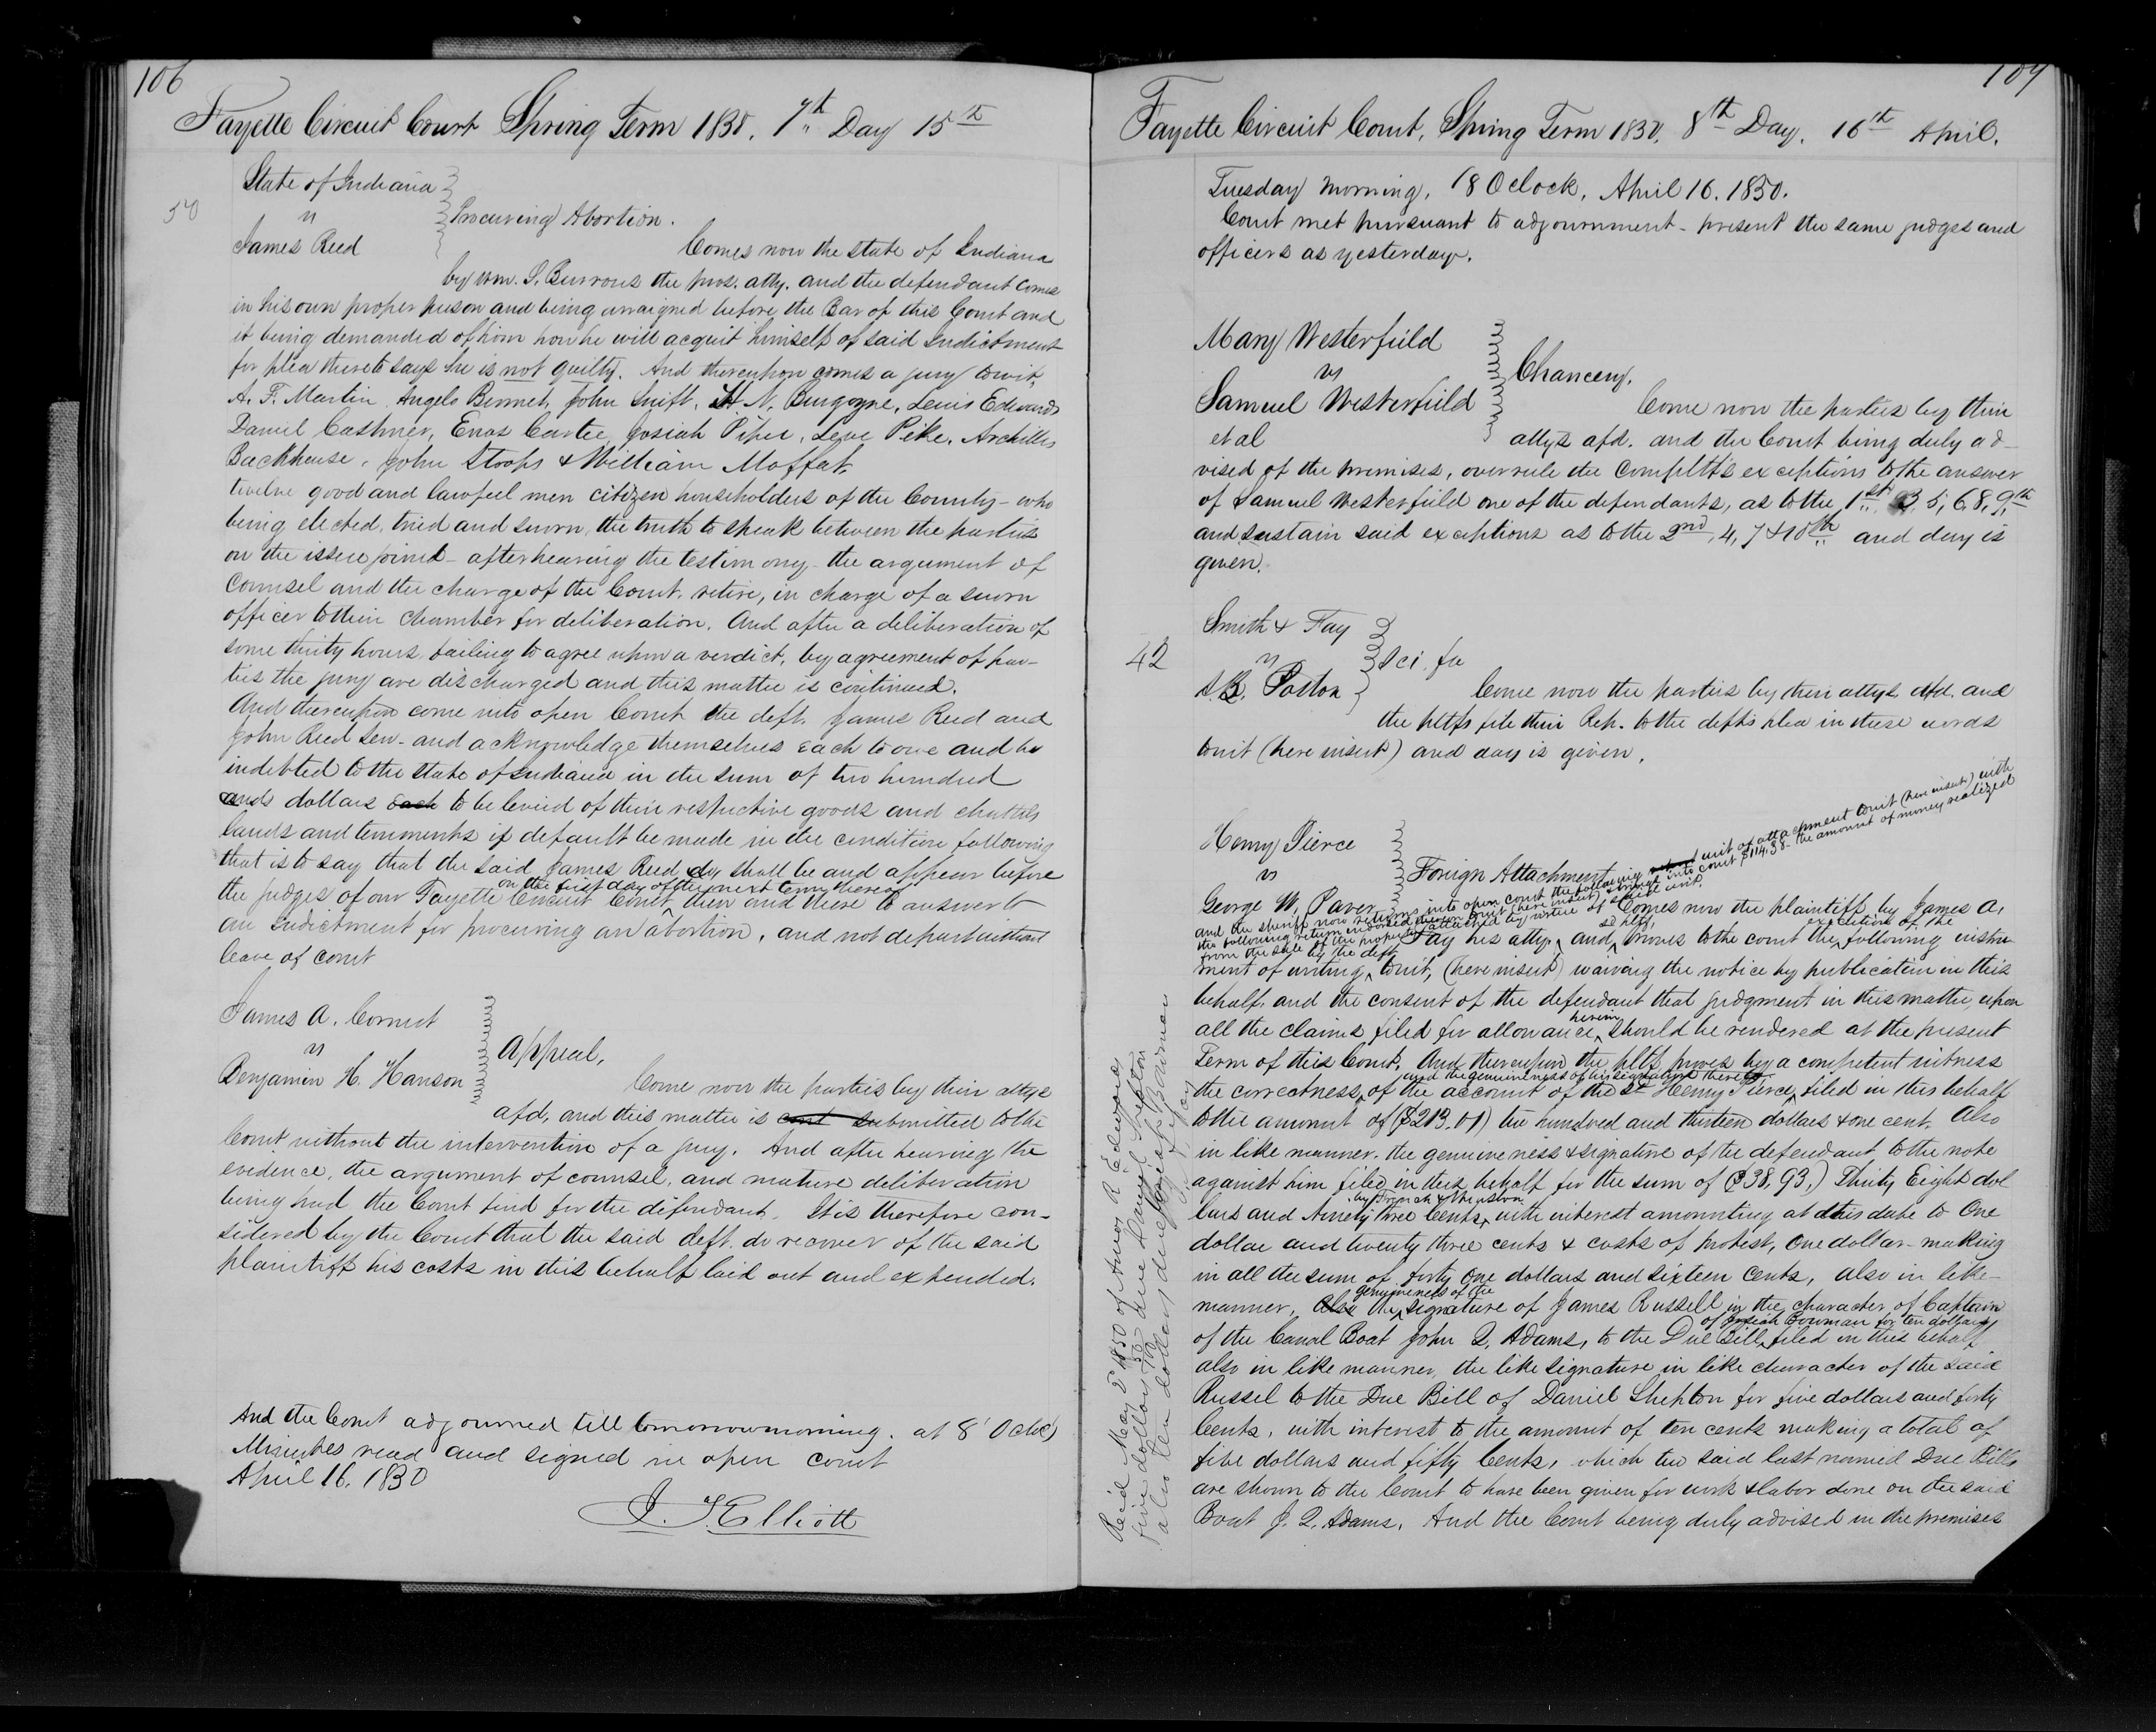 106
Fayette Circuit Court Spring Term 1850. 7th Day 15th
State of Indiana
50
vs
Procuring Abortion.
James Reed
Comes now the state of Indiana
by Wm. S. Burrous the pros. atty. and the defendant comes
in his own proper person and being arraigned before the Bar of this Court and
it being demanded of him how he will acquit himself of said Indictment
for plea thereto says he is not guilty. And thereupon comes a jury towit,
A. F. Martin Angelo Bennet, John Swift, H. N. Burgoyne, Lewis Edwards
Daniel Cashner, Enos Cartee, Josiah Piper, Levi Pike, Archilles
Backhouse, John Stoops & William Moffat
twelve good and lawfull men citizen householders of the County - who
being elected, tried and sworn, the truth to speak between the parties
on the issue joined - after hearing the testimony - the argument of
Counsel and the charge of the Court. retire, in charge of a sworn
officer to their chamber for deliberation. And after a deliberation of
some thirty hours, failing to agree upon a verdict, by agreement of par-
ties the jury are discharged and this matter is continued.
And thereupon come into open Court the deft. James Reed and
John Reed Sen. and acknowledge themselves each to owe and be
indebted to the state of Indiana in the sum of two hundred
dollars each to be levied of their respective goods and chattels
lands and tenements if default be made in the condition following
that is to say that the said James Reed shall be and appear before
on the first day of the next term thereof
the judges of our Fayette Circuit Court ^ then and there to answer to
an indictment for procuring an abortion, and not depart without
leave of court
James A. Cornut
vs
Appeal,
Benjamin H. Hanson
Come now the parties by their attys
afd, and this matter is cont submitted to the
Court without the intervention of a jury. And after hearing the
evidence, the argument of counsel, and mature deliberation
being had the Court find for the defendant. It is therefore con-
sidered by the Court that the said deft. do recover of the said
plaintiff his costs in this behalf laid out and expended.
And the Court adjourned till tomorrow morning. at 8 O clock
Minutes read and signed in open court
April 16. 1850
J. S Elliott
107
Fayette Circuit Court, Spring Term 1850. 8th Day. 16th April.
Tuesday morning, 8 O clock, April 16. 1850.
Court met pursuant to adjournment - present the same judges and
officers as yesterday.
Mary Westerfield
vs
Chancery.
Samuel Westerfield
et al
Come now the parties by their
attys afd. and the Court being duly ad-
vised of the premises, overrule the Complts exceptions to the answer
of Samuel Westerfield one of the defendants, as to the 1st 3, 5, 6, 8, 9th
and sustain said exceptions as to the 2nd, 4, 7 & 10th and day is
given.
Smith & Fay
42
vs
Sci. fa
S. B. Paston
Come now the parties by their attys afd. and
the pltfs file their Rep. to the defts plea in these words
towit (here insert) and day is given.
Henry Pierce
vs
Foreign Attachment
George W. Paver
and the sheriff now returns into open court the following writ of attachment towit (here insert) with
the following return indorsed thereon towit (here insert) & brings into court $114.38 the amount of money realized
from the sale of the property attached by virtue of said writ.
Comes now the plaintiff by James A.
sd pltf, execution of the
Fay his atty. ^ and ^ proves to the court the ^ following instru-
by the deft
ment of writing ^ towit, (here insert) waiving the notice by publication in this
behalf, and the consent of the defendant that judgment in this matter, upon
herein
all the claims filed for allowance ^ should be rendered at the present
Term of this Court. And thereupon the pltf proves by a competent witness
and the genuineness of his signature thereto
the correctness ^ of the account of the sd Henry Pierce ^ filed in this behalf
to the amount of ($213.01) two hundred and thirteen dollars & one cent. Also
in like manner. the genuineness & signature of the defendant to the note
against him filed in this behalf for the sum of ($38.93.) Thirty Eight dol
lars and Ninety three Cents ^ with interest amounting at this date to One
dollar and twenty three cents & costs of protest, One dollar - making
in all the sum of forty One dollars and sixteen cents, also in like
genuineness of the
manner, Also the ^ signature of James Russell in the character of Captain
of Josiah Bowman for ten dollars
of the Canal Boat John Q. Adams, to the Due Bill ^ filed in this behalf
also in like manner, the like signature in like character of the said
Russel to the Due Bill of Daniel Shepton for five dollars and forty
Cents, with interest to the amount of ten cents making a total of
five dollars and fifty Cents, which two said last named Due Bills
are shown to the Court to have been given for work & labor done on the said
Boat J. Q. Adams. And the Court being duly advised in the premises
Recd May 2 1850 of Amos R Edwards
five dollars 50/100 due Daniel Shepton
also ten dollars due Josiah Bowman